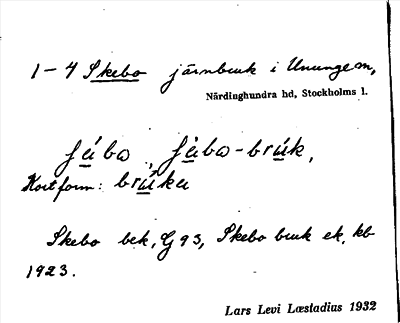 1-4 Skebo järnbruk i Ununge sn,
Närdinghundra hd, Stockholms l.
ʃèbo, ʃèbo-brúk,
Kortform: brúkɐ
Skebo bek, G 93, Skebo bruk ek, kb
1923.
Lars Levi Læstadius 1932